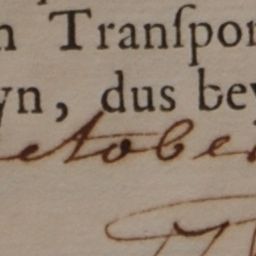 n Tranſpor
yn, dus bey
ctober